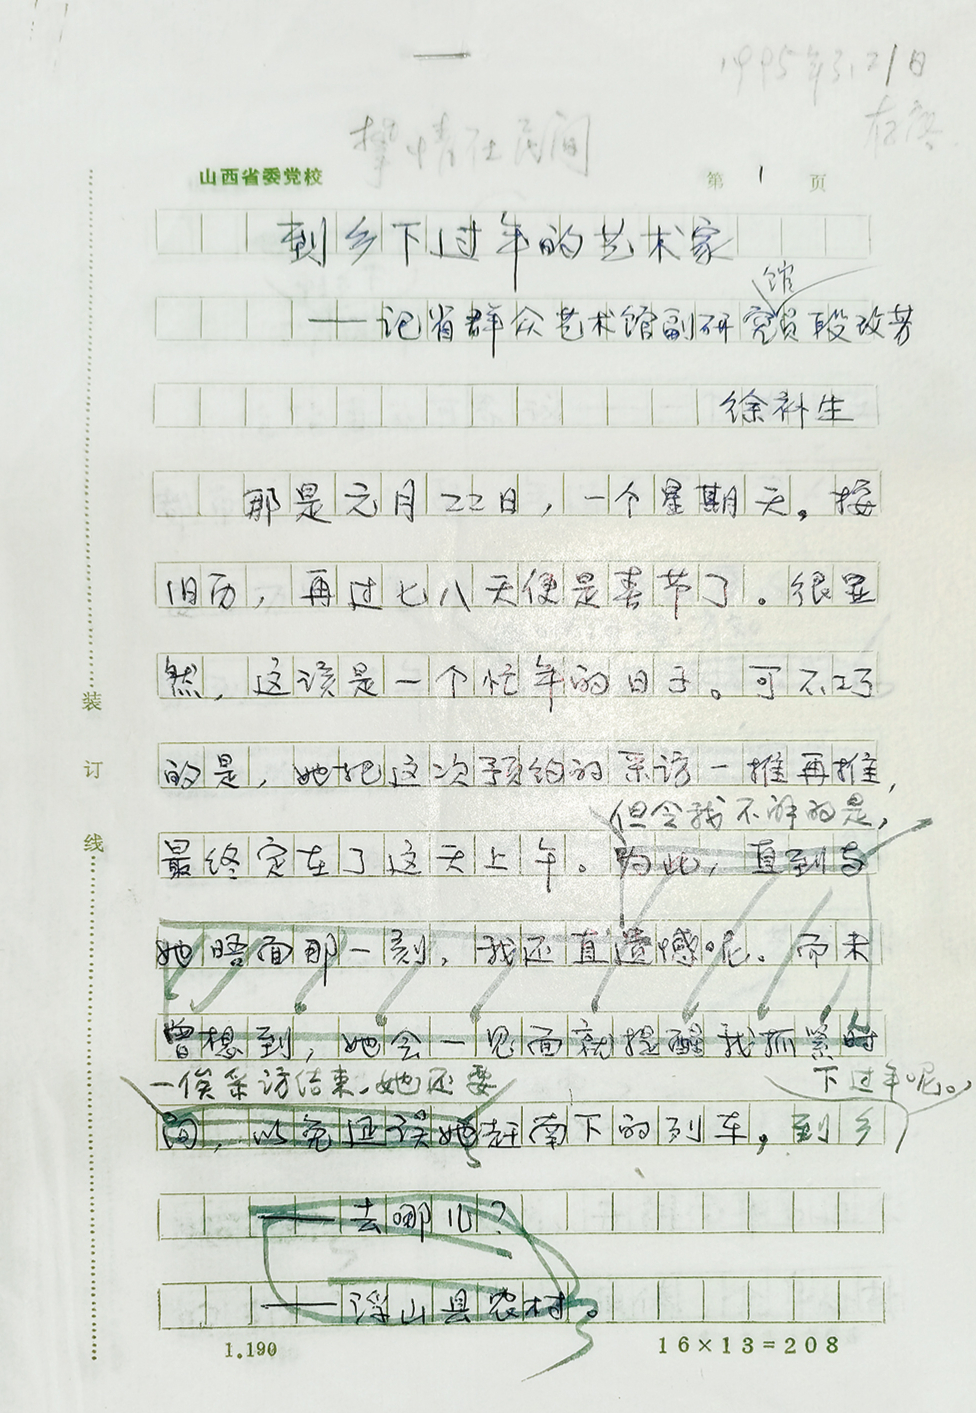 1995年3.21日
存底
挚情在民间
山西省委党校 第 1 页
到乡下过年的艺术家
馆
——记省群众艺术馆副研究员段改芳
徐补生
那是元月22日，一个星期天。按
旧历，再过七八天便是春节了。很显
然，这该是一个忙年的日子。可不巧
的是，她把这次预约的采访一推再推，
但令我不解的是，
最终定在了这天上午。为此，直到与
她晤面那一刻，我还直遗憾呢。而未
曾想到，她会一见面就提醒我抓紧时
一俟采访结束，她还要
下过年呢。
间，以免延误她赶南下的列车，到乡
——去哪儿？
——浮山县农村。
装
订
线
1.190
16×13=208